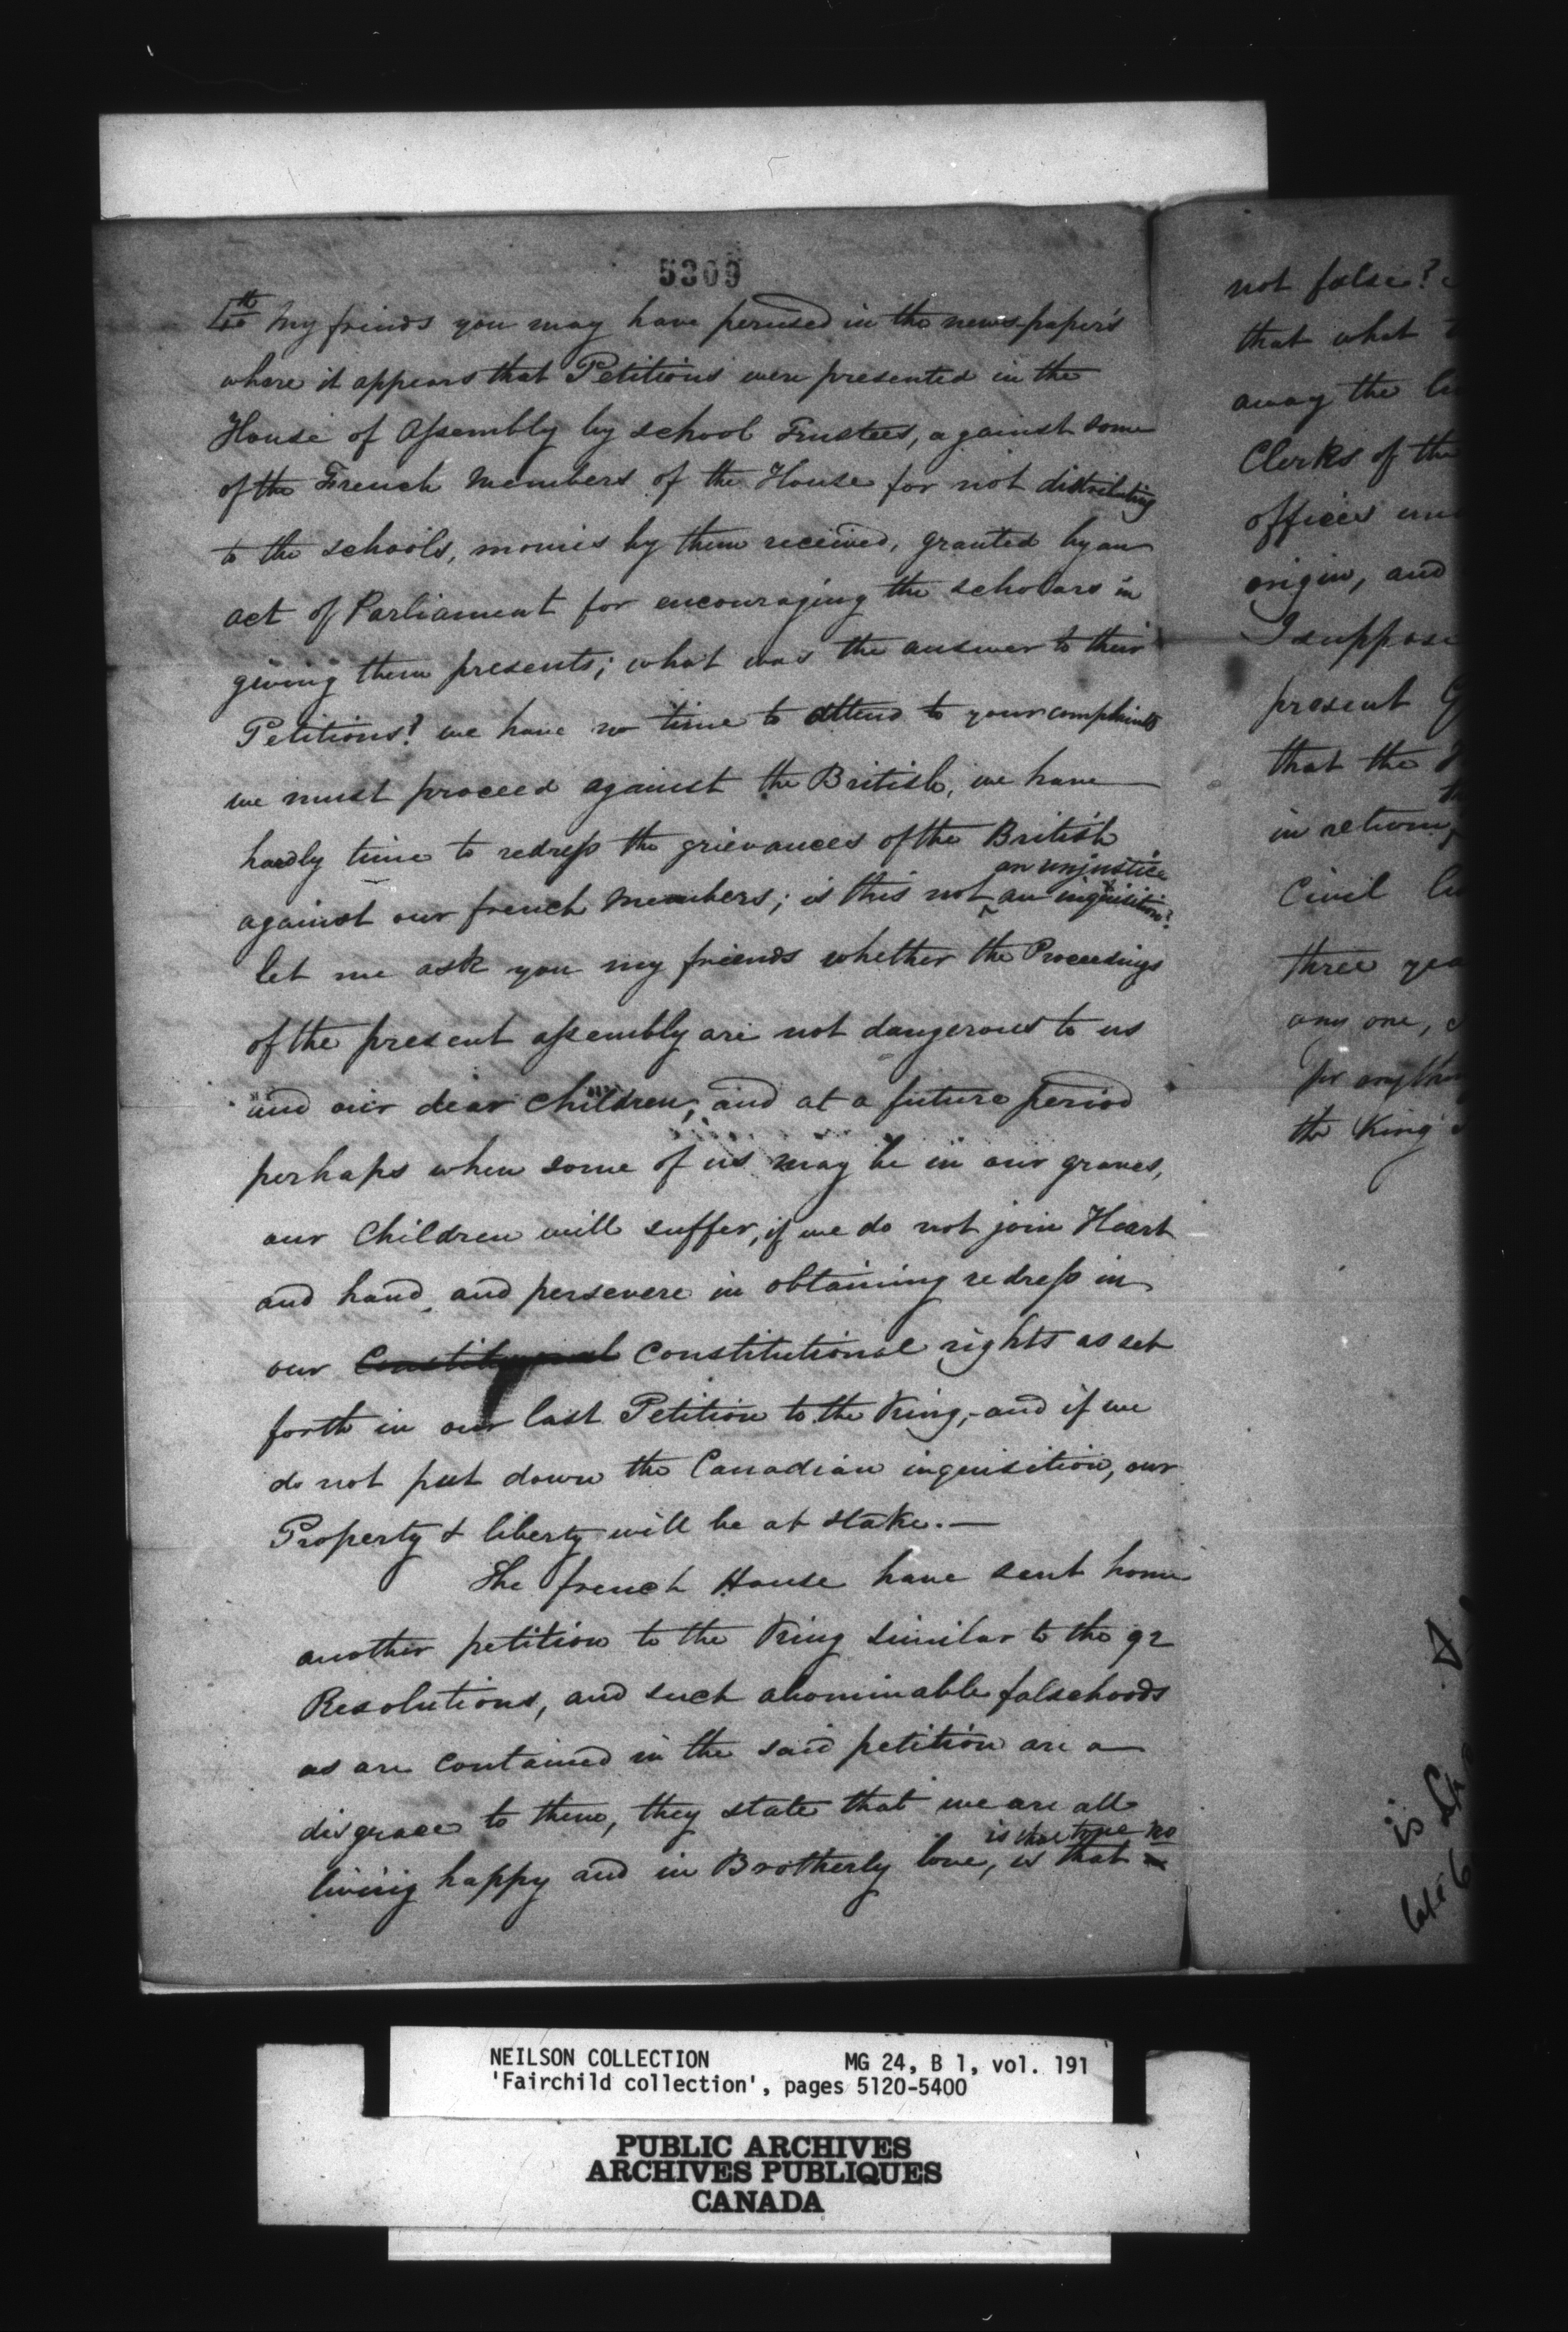 5309
4th My friends you may have perused in the news-paper's
where it appears that Petitions were presented in the
House of Assembly by school Trustees, against some
of the French Members of the House for not distributing
to the schools, monies by them received, granted by an
act of Parliament for encouraging the scholars in
giving them presents; what was the answer to their
Petitions? we have no time to attend to your complaints
we must proceed against the British, we have
hardly time to redress the grievances of the British
an unjustice
against our french Members; is this not an inquisition?
let me ask you my friends whether the Proceedings
of the present assembly are not dangerous to us
and our dear Children, and at a future period
perhaps when some of us may be in our graves,
our Children will suffer, if we do not join Heart
and hand, and persevere in obtaining redress in
our Constitutional Constitutional rights as set
forth in our last Petition to the King,- and if we
do not put down the Canadian inquisition, our
Property & liberty will be at stake.—
The french House have sent home
another petition to the King similar to the 92
Resolutions, and such abominable falsehoods
as are contained in the said petition are a
disgrace to them, they state that we are all
is that true no
living happy and in Brotherly love, is that
not false?
that what
away the
Clerks of the
offices
origin, and
I suppose
present
that the
in return
Civil
three
any one,
for anything
the King
is
NEILSON COLLECTION MG 24, B 1, vol. 191
'Fairchild collection', pages 5120-5400
PUBLIC ARCHIVES
ARCHIVES PUBLIQUES
CANADA